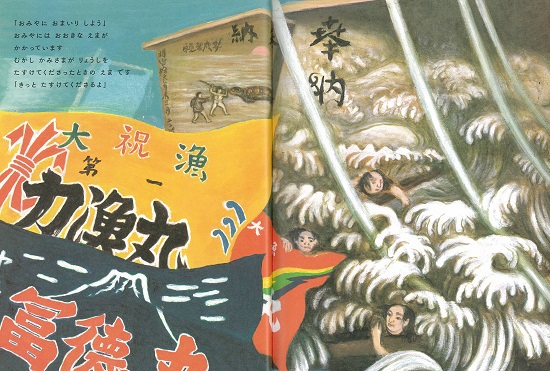 「おみやに おまいり しよう」
おみやには おおきな えまが
かかっています
むかし かみさまが りょうしを
たすけてくださったときの えま です
「きっと たすけてくださるよ」
奉納
納
大祝漁
第一
力漁丸
大
冨德丸